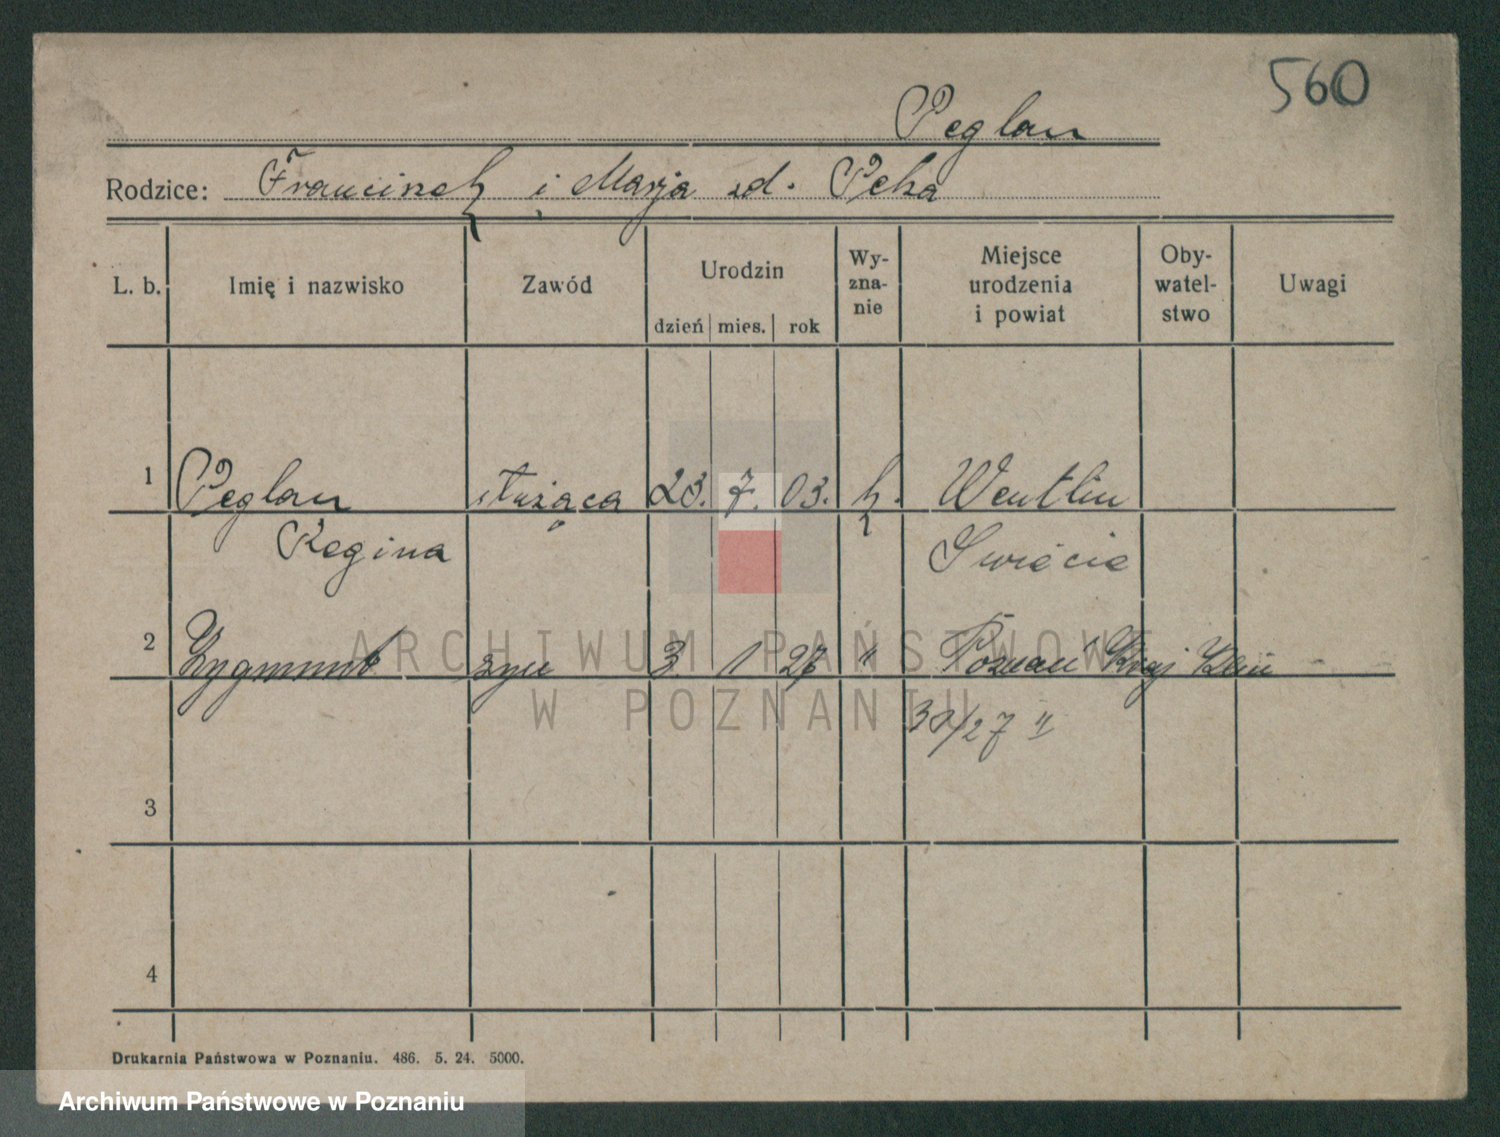 560
Peglau
Rodzice: Franciszek i Marja zd. Peka
L. b. Imię i nazwisko Zawód Urodzin dzień mies. rok Wy-zna-nie Miejsce urodzenia i powiat Oby-watel-stwo Uwagi
1 Peglau służąca 23. 7. 03. k. Wentlin
Regina Swiecie
2 Zygmunt syn 3. 1 27 " Poznań Kraj
/27
3
4
ARCHIWUM PAŃSTWOWE
W POZNANIU
Drukarnia Państwowa w Poznaniu. 486. 5. 24. 5000.
Archiwum Państwowe w Poznaniu